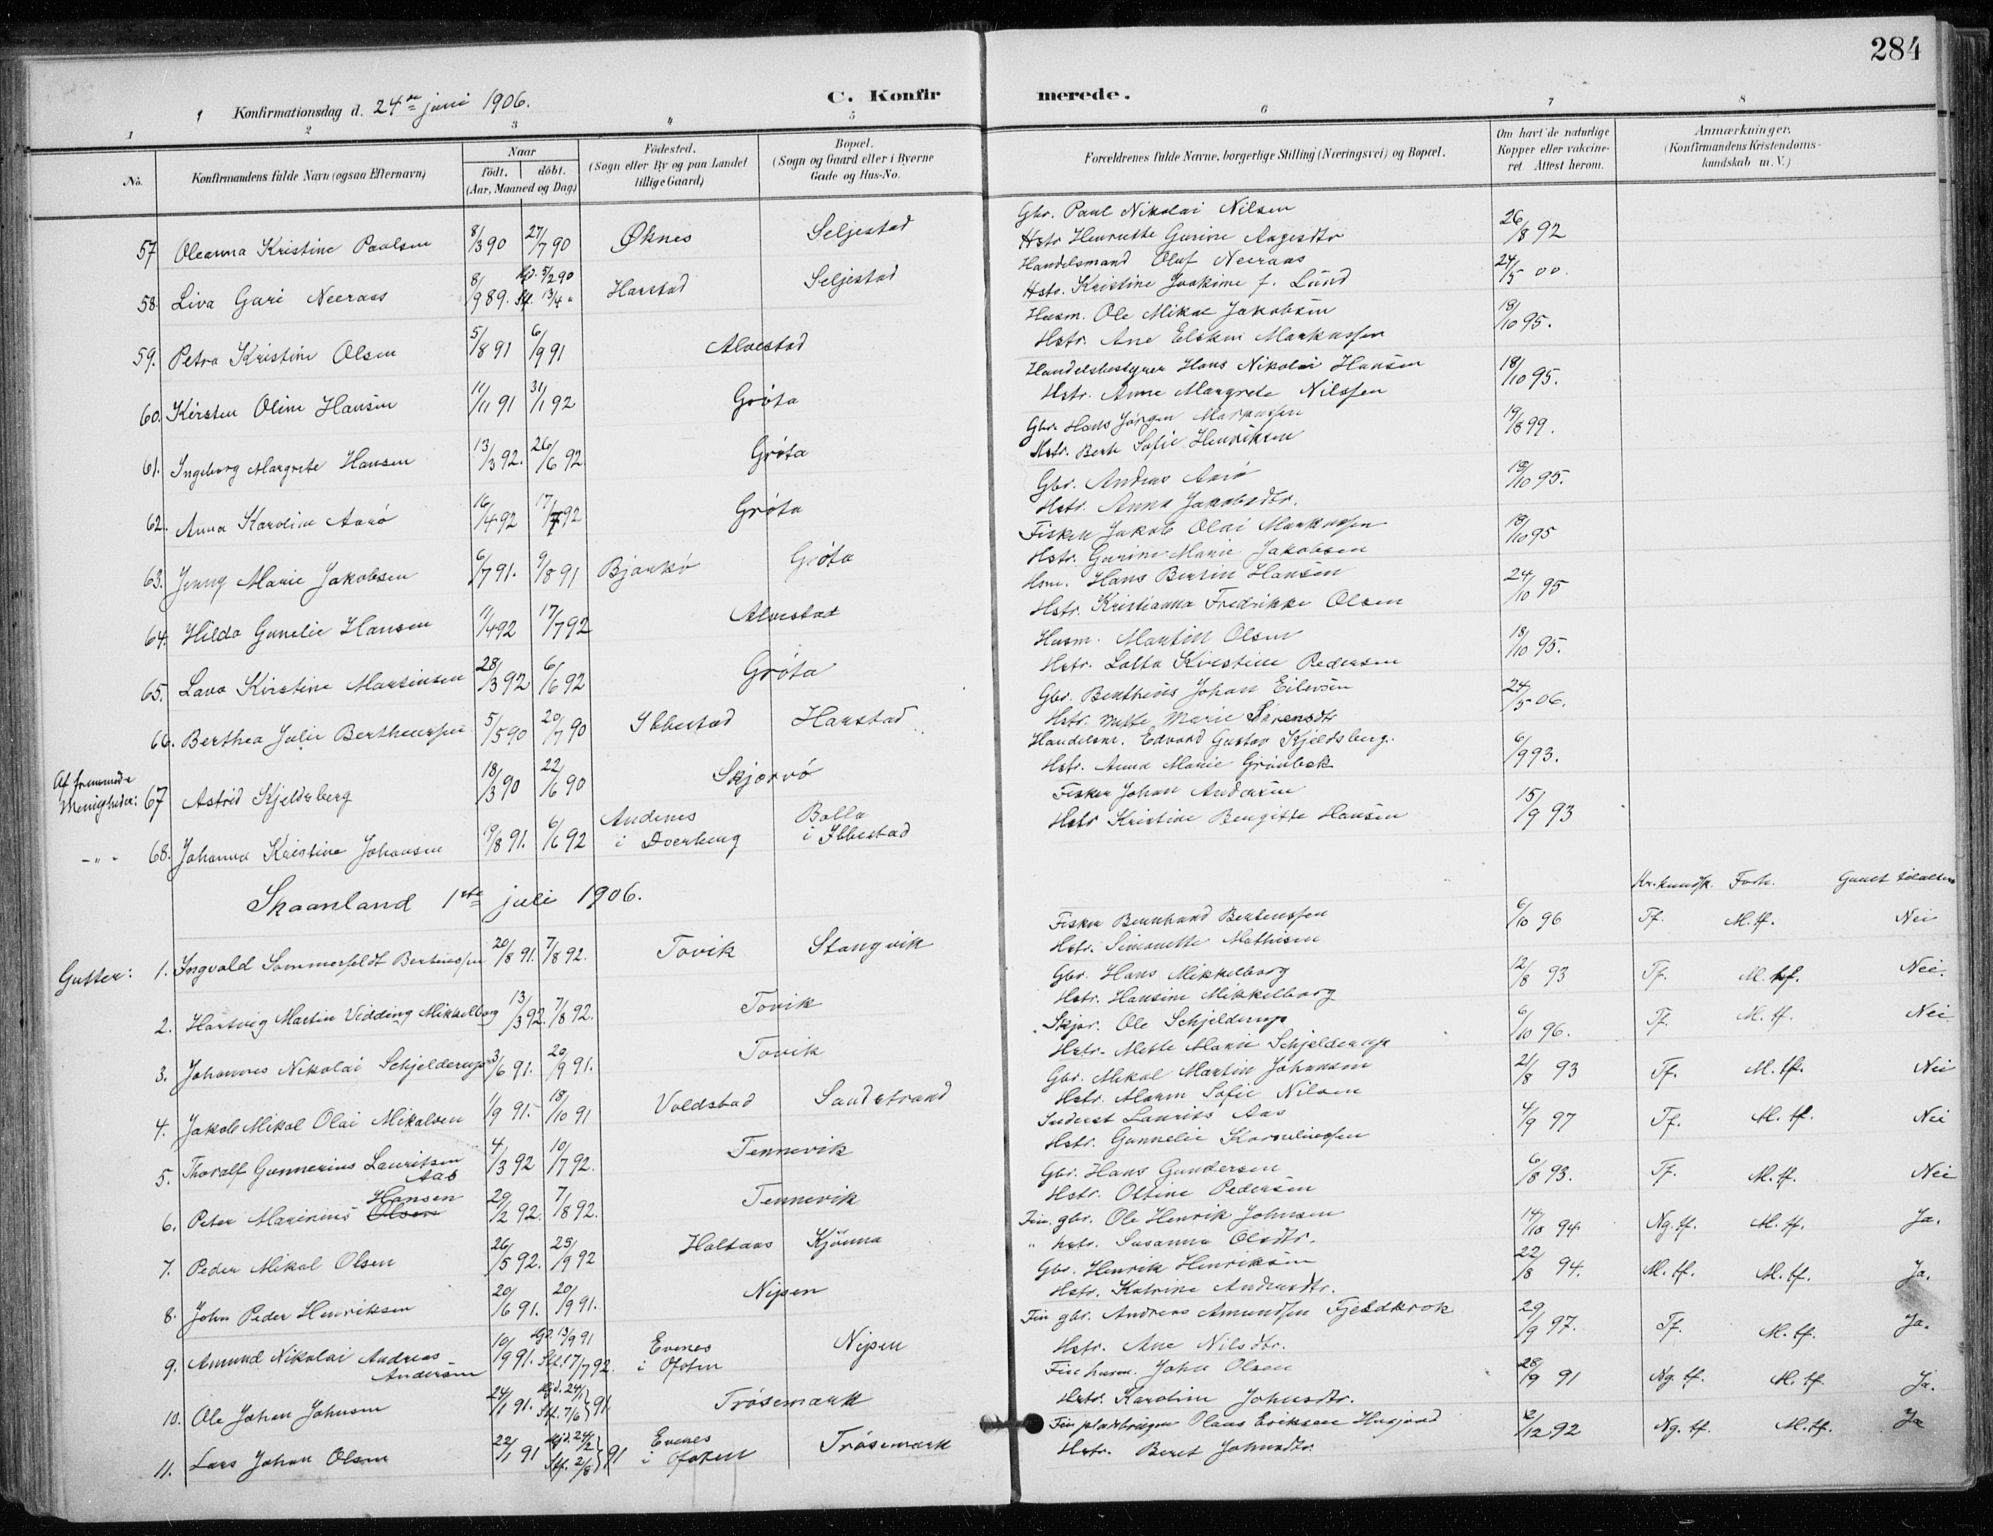 284
Konfirmationsdag d. 24de juni 1906.
C. Konfirmerede.
1 2 3 4 5 6 7 8
No. Konfirmandens fulde Navn (ogsaa Efternavn) Naar födt. döbt. (Aar, Maaned og Dag) Födested. (Sogn eller By og paa Landet tillige Gaard) Bopæl. (Sogn og Gaard eller i Byerne Gade og Hus-No. Forældrenes fulde Navne, borgerlige Stilling (Næringsvei) og Bopæl. Om havt de naturlige Kopper eller vakcineret. Attest herom. Anmærkninger. (Konfirmandens Kristendomskundskab m. V.)
57 Oleanna Kristine Paulsen 8/3 90 27/7 90 Øknes Seljestad Gbr. Paul Nikolai Nilsen 26/8 92
Hstr Henrikke Gurine Aagesdtr
58. Liva Guri Neeraas 8/9 89. Hjd. 5/2 90 Stf. 13/4 " Harstad Seljestad Handelsmand Oluf Neeraas 24/5 00.
Hstr. Kristine Joakime f. Lund
59. Petra Kristine Olsen 5/8 91 6/9 91 Alvestad Husm. Ole Mikal Jakobsen 18/10 95.
Hstr. Ane Elskin Markussen
60. Kirsten Oline Hansen 11/11 91 31/1 92 Grøta Handelsbestyrer Hans Nikolai Hansen 18/10 95.
Hstr. Anne Margrete Nilssen
61. Ingeborg Margrete Hansen 13/3 92. 26/6 92 Grøta Gbr. Hans Jørgen Markussen 19/8 99.
Hstr. Berh Sofie Henriksen
62. Anna Karoline Aarø 16/4 92 17/7 92 Grøta Gbr. Andreas Aarø 18/10 95.
Hstr. Anna Jakobsdtr.
63. Jenny Marie Jakobsen 6/7 91. 9/8 91 Bjarkø Grøta Fisker Jakob Olai Markussen 18/10 95
Hstr. Gurine Marie Jakobsen
64. Hilda Gunelie Hansen 11/4 92 17/7 92 Alvestad Hsm. Hans Bertin Hansen 24/10 95
Hstr. Kristianna Fredrikke Olsen
65. Lava Kirstine Martinsen 28/3 92 6/6 92 Grøta Husm. Martin Olsen 18/10 95.
Hstr. Lotta Kirstine Pedersen
66. Berthea Julie Bertheussen 5/5 90 20/7 90 Ibbestad Harstad Gbr. Bertheus Johan Eilevsen 24/5 06.
Hstr. Mette Marie Sørensdtr
Af fremmede Menigheder: 67 Astrid Kjeldsberg 18/3 90 22/6 90 Skjærvø Handelsm. Edvard Gustav Kjeldsberg. 6/9 93.
Hstr. Anna Marie Grønbek
-"- 68. Johanna Kristine Johansen 19/8 91. 6/6 92 Andenes i Dverberg Bolla i Ibbestad Fisker Johan Andersen 15/9 93
Hstr Kristine Bergitte Hansen
Skaanland 1ste juli 1906.
Kr.kundsk. Forh.
Gutter: 1. Ingvald Sommerfeldt Bertinussen 20/8 91. 7/8 92. Tovik Stangvik Fisker Bernhard Bertinussen 6/10 96 Tf. M.tf. Nei
Hstr. Simonette Mathisen
2. Hartvig Martin Vidding Mikkelborg 13/3 92. 7/8 92. Tovik Gbr. Hans Mikkelborg 12/8 93 Tf. M.tf. Nei.
Hstr. Hansine Mikkelborg
3. Johannes Nikolai Schjelderup 3/6 91. 20/9 91. Tovik Skjor. Ole Schjelderup 6/10 96. Tf. M.tf. Nei
Hstr. Mette Marie Schjelderup
4. Jakob Mikal Olai Mikalsen 1/9 91. 18/10 91 Voldstad Sandstrand Gbr. Mikal Martin Johansen 21/8 93 Tf. M.tf. Nei
Hstr. Maren Sofie Nilsen
5. Thoralf Gunnerius Lauritsen Aas 4/3 92 10/7 92. Tennevik Inderst Laurits Aas 4/9 97 Tf. M.tf. Nei
Hstr. Gunnelie Korneliussen
6. Peter Marinius Olsen Hansen 29/2 92. 7/8 92. Tennevik Gbr. Hans Gundersen 6/8 93. Tf. M.tf. Nei
Hstr. Oltine Pedersen
7. Peder Mikal Olsen 26/5 92. 25/9 92 Holtaas Kjønna Fin. gbr. Ole Henrik Johnsen 14/10 94. Ng.tf. M.tf. Ja.
" hstr. Susanna Olsdtr.
8. John Peder Henriksen 20/6 91. 20/9 91. Nipen Gbr. Henrik Henriksen 22/8 94. M.tf. M.tf. Ja.
Hstr. Katrine Andersdtr.
9. Amund Nikolai Andreas Andersen 10/9 91. Hjd. 13/9 91 Stf. 17/7 92. Evenes i Ofoten Nipen Fin gbr. Andreas Amundsen Fjeldkrok 29/9 97. Tf. M.tf. Ja.
Hstr. Ane Nilsdtr.
10. Ole Johan Johnsen 24/1 91. Hjd. 24/1 Stf. 7/6 } 91. Trøsemark Fin husm. John Olsen 28/9 91 Ng.tf. M.tf. Ja.
Hstr. Karoline Johnsdtr.
11. Lars Johan Olsen 22/1 91 Hjd. 24/2 Stf. 2/8 } 91 Evenes i Ofoten Trøsemark Fin pladsbruger Olaus Eriksen 2/12 92 Ng.tf. M.tf. Ja
Hstr. Beret Johnsdtr.